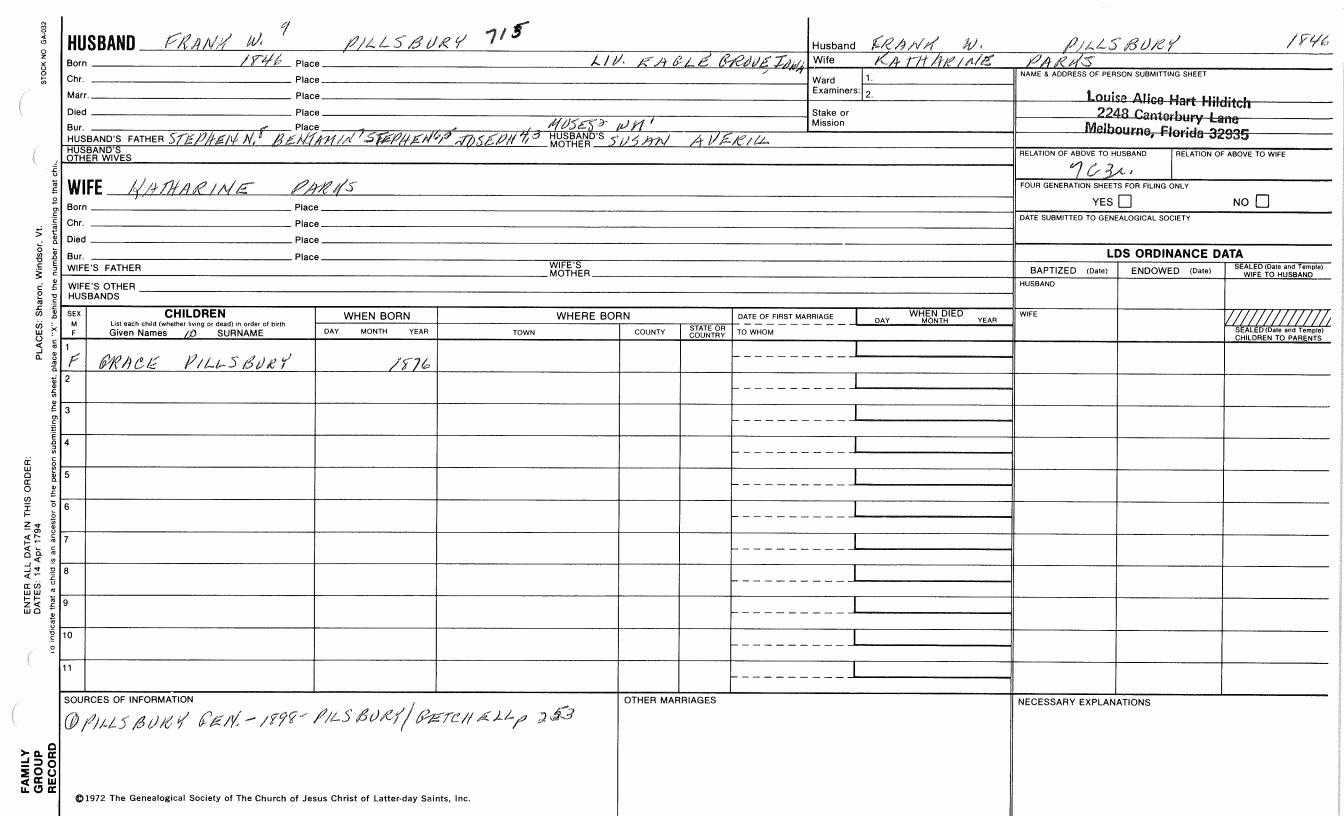 STOCK NO. GA-032
HUSBAND FRANK W. 9 PILLSBURY 715
Born 1846 Place LIV. EAGLE GROVE, IOWA
Chr. Place
Marr. Place
Died Place
Bur. Place
HUSBAND'S FATHER STEPHEN N.8 BENJAMIN7 STEPHEN6,5 JOSEPH4,3 MOSES2 WM1
HUSBAND'S MOTHER SUSAN AVERILL
HUSBAND'S OTHER WIVES
WIFE KATHARINE PARKS
Born Place
Chr. Place
Died Place
Bur. Place
WIFE'S FATHER WIFE'S MOTHER
WIFE'S OTHER HUSBANDS
Husband FRANK W. PILLSBURY 1846
Wife KATHARINE PARKS
Ward Examiners: 1. 2.
Stake or Mission
NAME & ADDRESS OF PERSON SUBMITTING SHEET
Louise Alice Hart Hilditch
2248 Canterbury Lane
Melbourne, Florida 32935
RELATION OF ABOVE TO HUSBAND RELATION OF ABOVE TO WIFE
7C3r.
FOUR GENERATION SHEETS FOR FILING ONLY
YES NO
DATE SUBMITTED TO GENEALOGICAL SOCIETY
LDS ORDINANCE DATA
BAPTIZED (Date) ENDOWED (Date) SEALED (Date and Temple) WIFE TO HUSBAND
HUSBAND
WIFE
SEALED (Date and Temple) CHILDREN TO PARENTS
SEX M F
CHILDREN
List each child (whether living or dead) in order of birth
Given Names 10 SURNAME
WHEN BORN
DAY MONTH YEAR
WHERE BORN
TOWN COUNTY STATE OR COUNTRY
DATE OF FIRST MARRIAGE
TO WHOM
WHEN DIED
DAY MONTH YEAR
1
F GRACE PILLSBURY 1876
2
3
4
5
6
7
8
9
10
11
SOURCES OF INFORMATION
① PILLSBURY GEN. - 1898 - PILSBURY/GETCHELL p 253
OTHER MARRIAGES
NECESSARY EXPLANATIONS
©1972 The Genealogical Society of The Church of Jesus Christ of Latter-day Saints, Inc.
PLACES: Sharon, Windsor, Vt.
ENTER ALL DATA IN THIS ORDER:
DATES: 14 Apr 1794
To indicate that a child is an ancestor of the person submitting the sheet, place an "X" behind the number pertaining to that chi
FAMILY
GROUP
RECORD